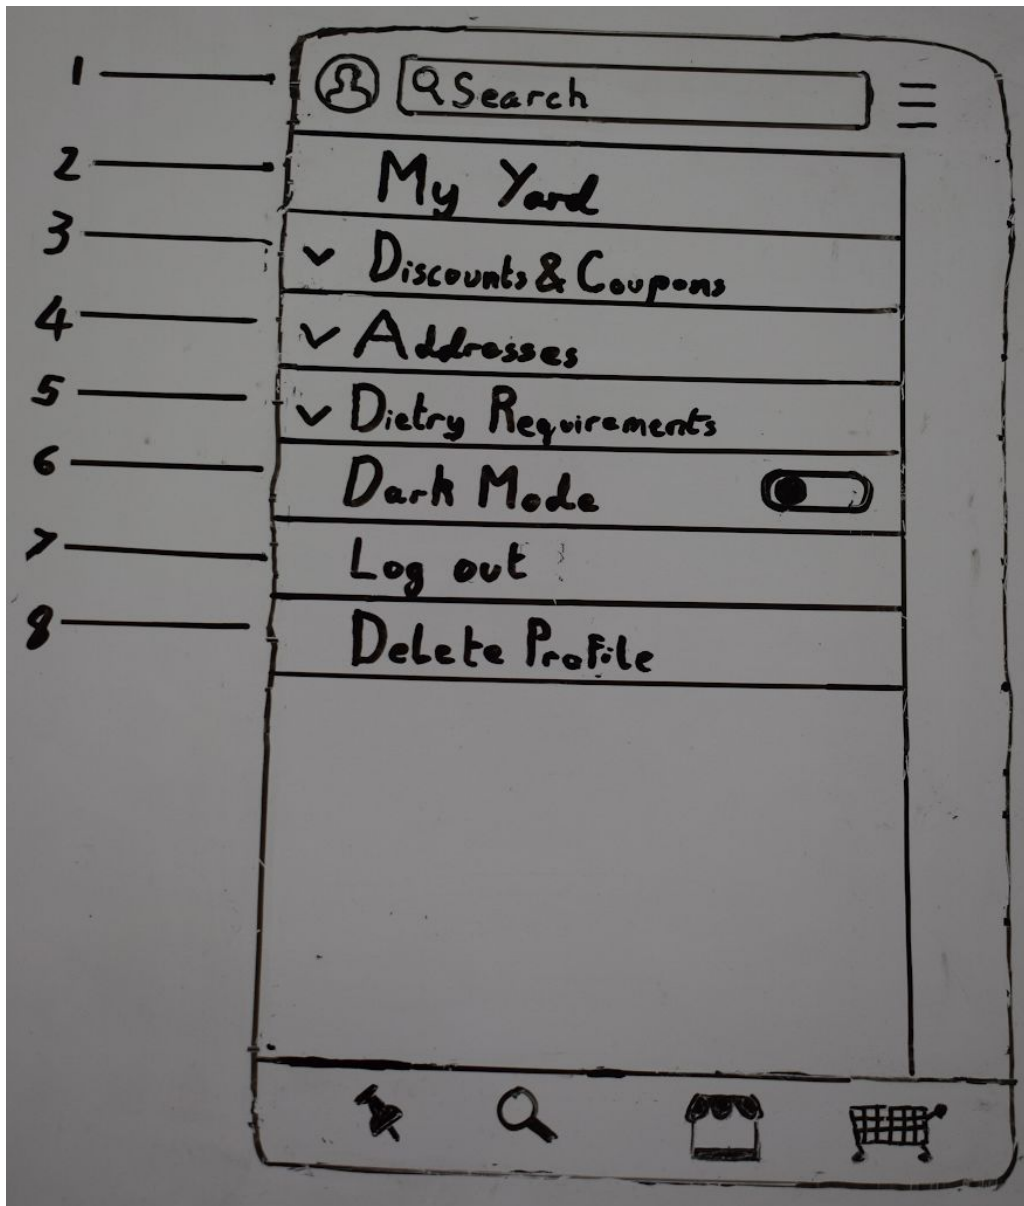 1 Search
2 My Yard
3 Discounts & Coupons
4 Addresses
5 Dietry Requirements
6 Dark Mode
7 Log out
8 Delete Profile